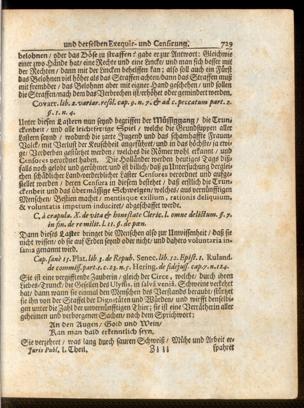 und derselben Exequir- und Censirung. 729
belohnen / oder das Böse zu straffen / gabe er zur Antwort: Gleichwie
einer zwo Hände hat / eine Rechte und eine Lincke / und man sich besser mit
der Rechten / dann mit der Lincken behelffen kan; also soll auch ein Fürst
das Belohnen viel höher als das Straffen achten dann das Straffen muß
mit frembder / das Belohnen aber mit eigner Hand geschehen / und sollen
die Straffen nach dem das Verbrechen ist erhöhet oder gemindert werden.
Covarr. lib. 2. variar. resol. cap. 9. n. 7. & ad c. peccatum part. 2.
§. 1. n. 4.
Unter diesen Lastern nun seynd begriffen der Müssiggang / die Trun-
ckenheit / und alle leichtfertige Spiel / welche die Grundsuppen aller
Lastern seynd / wodurch die zarte Jugend und das schamhaffte Frauen-
Volck / mit Verlust der Keuschheit angeführet / und in das höchste
Verderben gestürtzet werden / welches die Römer wohl erkannt / und
Censores verordnet haben. Die Holländer werden heutiges Tags deß-
falls noch gelobt und gerühmet / und ist billich / daß zu Untertruckung dergleichen
schändlicher und verderblicher Laster Censores verordnet und aufge-
stellet werden / deren Censura in diesem bestehet / daß erstlich die Trun-
ckenheit / und das übermässige Schwelgen / welches / aus vernünfftigen
Menschen / Vielisch machet / mentisque exilium, rationis deliquium,
& voluntatis impotum inducirt / abgeschaffet werde.
C. à crapula. X. de vita & honestate Cleric. l. omne delictum. §. 7.
in fin. de re milit. l. 11. §. de pœn.
Dann dieses Laster bringet die Menschen also zur Unwissenheit / daß sie
nicht wissen / ob sie auf Erden seynd oder nicht / und dahero voluntaria in-
sania genennt wird.
Cap. sanè 15. Plat. lib. 3. de Repub. Senec. lib. 12. Epist. 1. Ruland.
de commiss. part. 2. c. 23. n. 3. Hering. de fidejuss. cap. 7. n. 124.
Sie ist eine vergifftende Zauberin / gleich der Circe, welche / durch ihren
Liebes-Trunck / die Gesellen des Ulyssis, in salvâ veniâ, Schweine verkehret
hat / dann wann sie einmal den Menschen des Verstands beraubt / stürtzet
sie ihn von der Staffel der Dignitäten und Würden / und wirfft denselbi-
gen unter die Zahl der unvernünfftigen Thier; sie ist eine Verrätherin aller
geheimen und verborgenen Sachen / nach dem Sprichwort:
An den Augen / Gold und Wein /
Kan man bald erkenntlich seyn.
Sie verzehret / was lang durch sauren Schweiß / Mühe und Arbeit er-
Juris Publ. I. Theil. Zzzz spahret